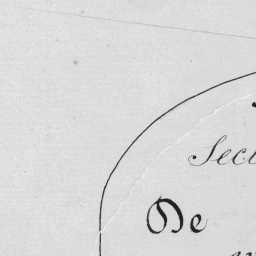 Sect
De